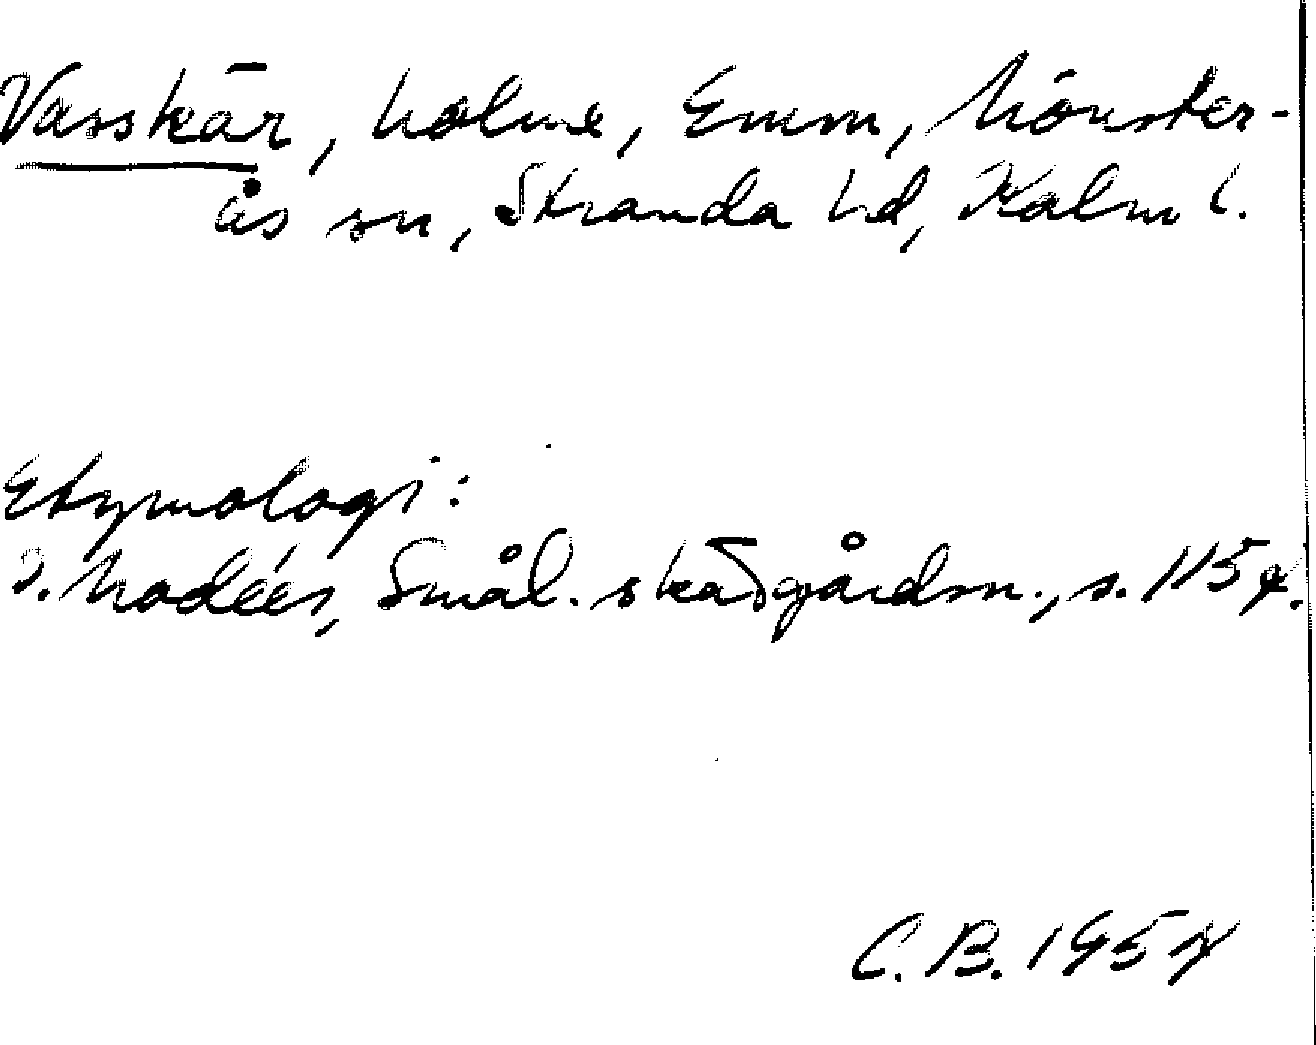 Vasskär, holme, Emm, Mönster-
ås sn, Stranda hd, Kalm l.
Etymologi:
I. Modéer, Smål. skärgårdsn., s. 115 f.
C.B. 1957